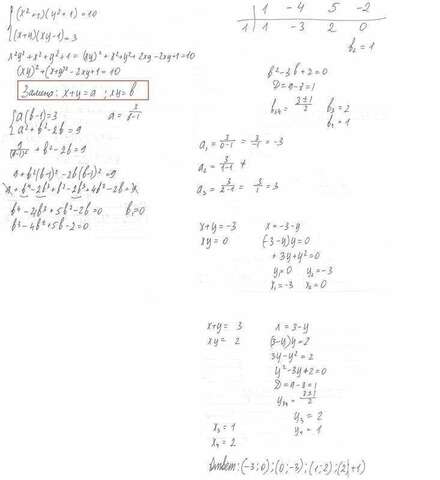 {(x²+1)(y²+1)=10
{(x+y)(xy-1)=3
x²y²+x²+y²+1=(xy)²+x²+y²+2xy-2xy+1=10
(xy)²+(x+y)²-2xy+1=10
Замена: x+y=a ; xy=b
{a(b-1)=3 a=3/(b-1)
{a²+b²-2b=9
9/(b-1)²+b²-2b=9
b⁴-4b³+5b²-2b=0 b₁=0
b³-4b²+5b-2=0
1 -4 5 -2
1 | 1 -3 2 0
b₂=1
b²-3b+2=0
D=9-8=1
b₃,₄=(3±1)/2 b₃=2
b₄=1
a₁=3/(0-1)=3/-1=-3
a₂=3/(1-1) ≠
a₃=3/(2-1)=3/1=3
x+y=-3 x=-3-y
xy=0 (-3-y)y=0
+3y+y²=0
y₁=0 y₂=-3
x₁=-3 x₂=0
x+y=3 x=3-y
xy=2 (3-y)y=2
3y-y²=2
y²-3y+2=0
D=9-8=1
y₃,₄=(3±1)/2
y₃=2
x₃=1 y₄=1
x₄=2
Ответ: (-3;0);(0;-3);(1;2);(2;+1)